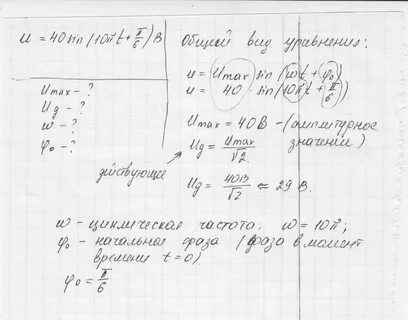 u = 40 sin (10πt + π/6) В
Umax - ?
Uд - ?
ω - ?
φ₀ - ?
Общий вид уравнения:
u = Umax sin (ωt + φ₀)
u = 40 · sin (10πt + π/6)
Umax = 40 В - (амплитудное
значении)
Uд = Umax/√2
действующее
Uд = 40В/√2 ≈ 29 В.
ω - циклическая частота. ω = 10π;
φ₀ - начальная фаза (фаза в момент
времени t = 0)
φ₀ = π/6